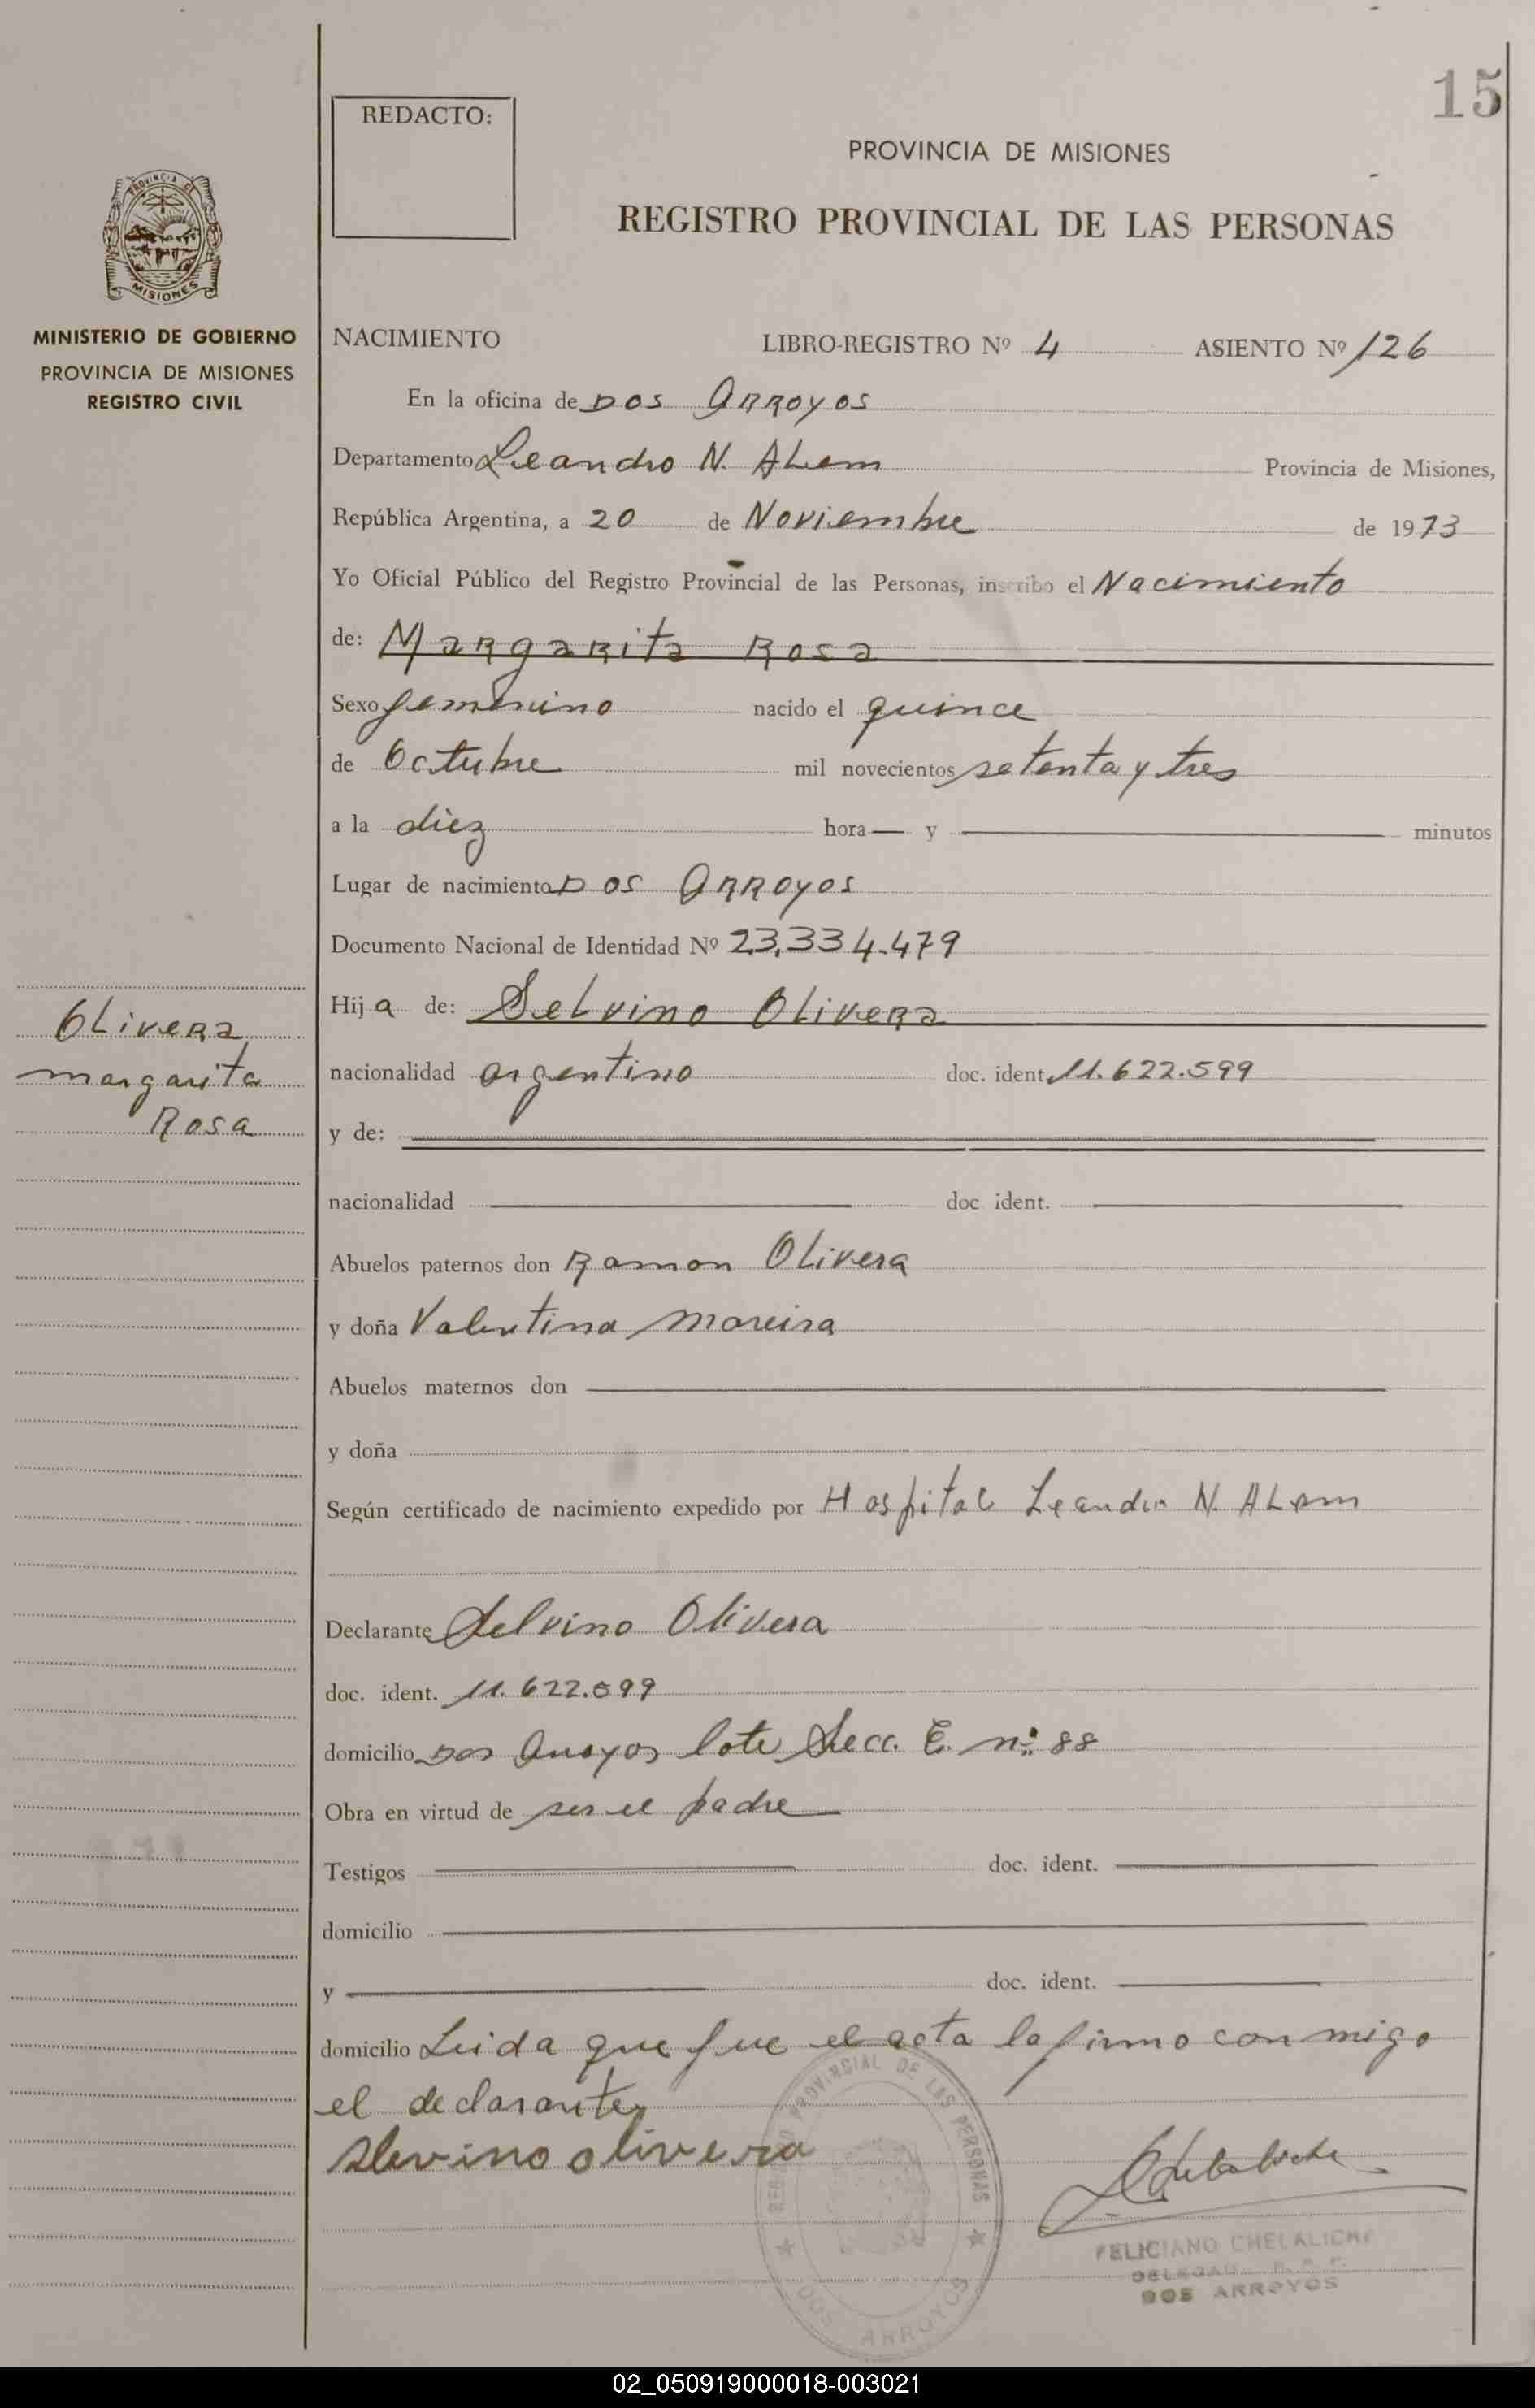 15
REDACTO:
PROVINCIA DE MISIONES
REGISTRO PROVINCIAL DE LAS PERSONAS
PROVINCIA DE
MISIONES
MINISTERIO DE GOBIERNO
PROVINCIA DE MISIONES
REGISTRO CIVIL
NACIMIENTO LIBRO-REGISTRO Nº 4 ASIENTO Nº 126
En la oficina de DOS ARROYOS
Departamento Leandro N. ALem Provincia de Misiones,
República Argentina, a 20 de Noviembre de 1973
Yo Oficial Público del Registro Provincial de las Personas, inscribo el Nacimiento
de: Margarita Rosa
Sexo femenino nacido el quince
de Octubre mil novecientos setenta y tres
a la diez hora — y — minutos
Lugar de nacimiento DOS ARROYOS
Documento Nacional de Identidad Nº 23.334.479
Hija de: Selvino Olivera
nacionalidad argentino doc. ident. 11.622.599
y de:
nacionalidad doc. ident.
Olivera
margarita
Rosa
Abuelos paternos don Ramon Olivera
y doña Valentina Moreira
Abuelos maternos don
y doña
Según certificado de nacimiento expedido por Hospital Leandro N. ALem
Declarante Selvino Olivera
doc. ident. 11.622.599
domicilio Dos Arroyos lote Secc. E. nº 88
Obra en virtud de ser el padre
Testigos doc. ident.
domicilio
y doc. ident.
domicilio Leida que fue el acta la firmo conmigo
el declarante
Slevino olivera
PROVINCIAL DE LAS PERSONAS
DOS ARROYOS
FELICIANO CHELALICHE
DOS ARROYOS
02_050919000018-003021